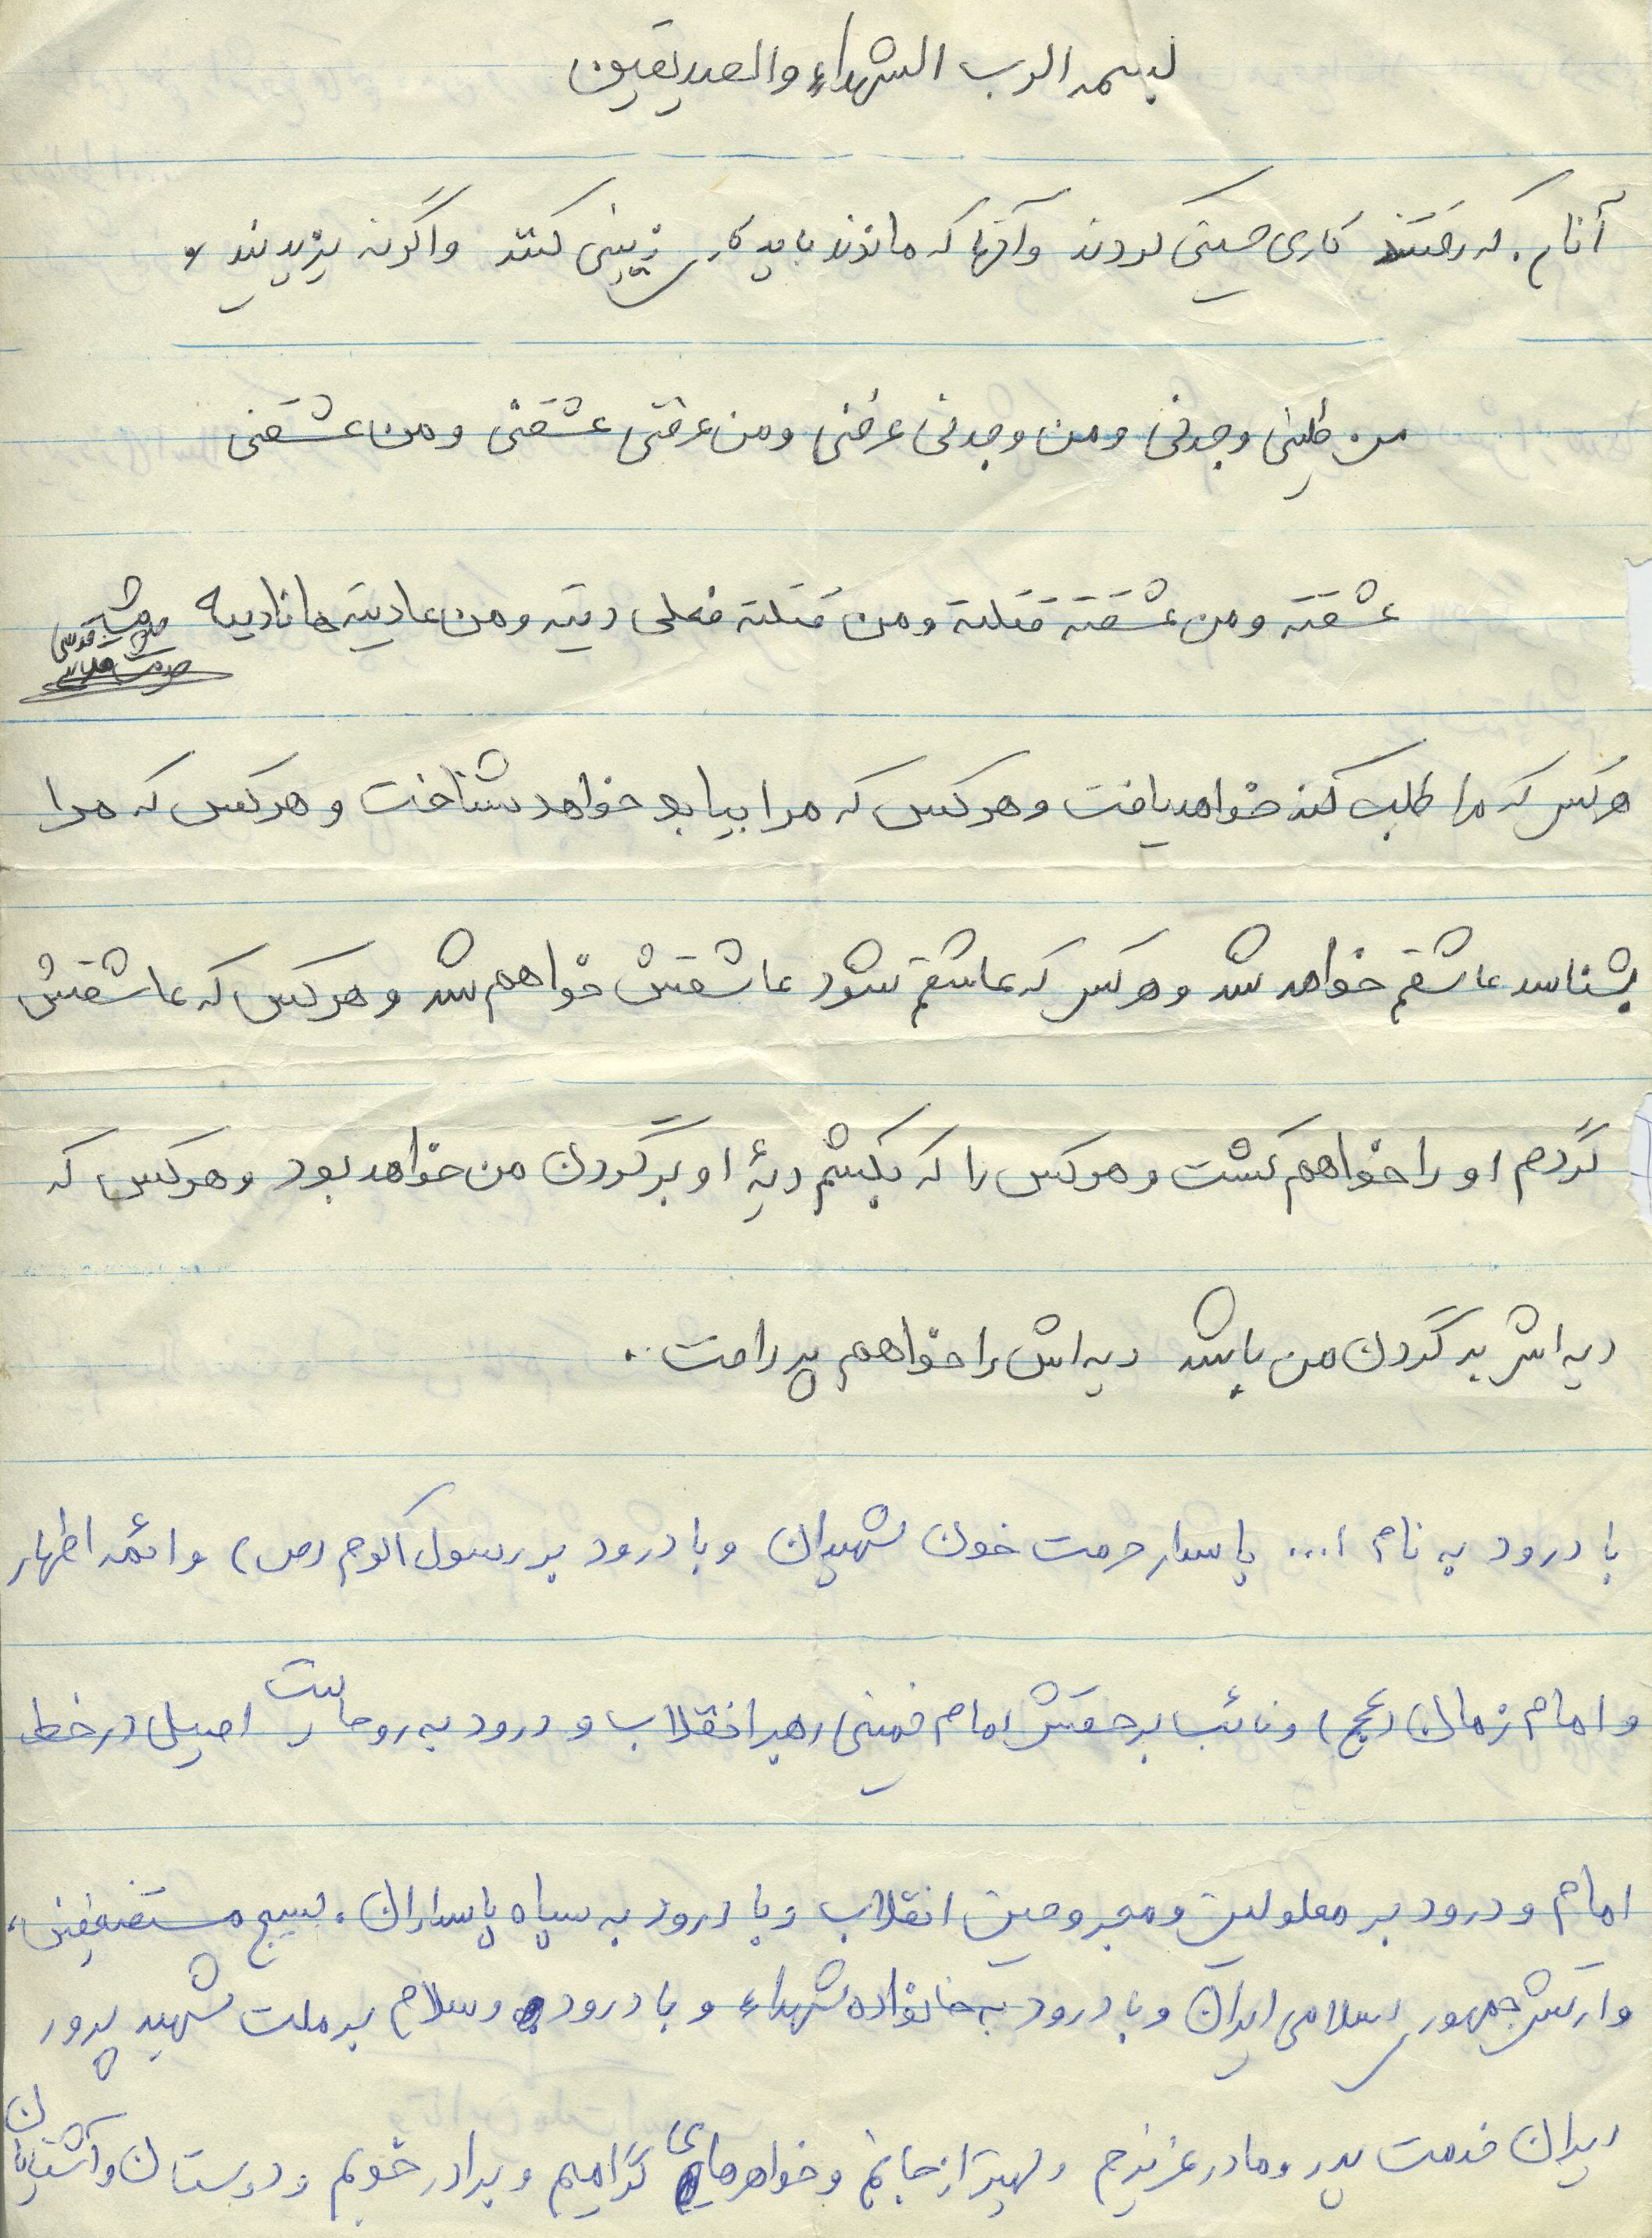 بسمه الرب الشهداء والصدیقین
آنان که رفتند کاری حسینی کردند و آنها که ماندند باید کار زینبی کنند و اگر نه یزیدیند
من طلبنی وجدنی و من وجدنی عرفنی و من عرفنی عشقنی و من عشقنی
عشقته و من عشقته قتلته و من قتلته فعلی دیته و من عادیته فانادیته حدیث قدسی
هر کس که مرا طلب کند خواهد یافت و هر کس که مرا بیابد خواهد شناخت و هر کس که مرا
بشناسد عاشقم خواهد شد و هر کس که عاشقم شود عاشقش خواهم شد و هر کس که عاشقش
گردم او را خواهم کشت و هر کس را که بکشم دیۀ او بر گردن من خواهد بود و هر کس که
دیه اش بر گردن من باشد دیه اش را خواهم پرداخت ..
با درود به نام ا... پاسدار حرمت خون شهیدان و با درود بر رسول اکرم (ص) و ائمه اطهار
و امام زمان (عج) و نائب بر حقش امام خمینی رهبر انقلاب و درود به روحانیت اصیل در خط
امام و درود بر معلولین و مجروحین انقلاب و با درود به سپاه پاسداران، بسیج مستضعفین،
و ارتش جمهوری اسلامی ایران و با درود به خانواده شهداء و با درود و سلام بر ملت شهید پرور
ایران خدمت پدر و مادر عزیزم و بهتر از جانم و خواهرهای گرامیم و برادر خوبم و دوستان و آشنایان